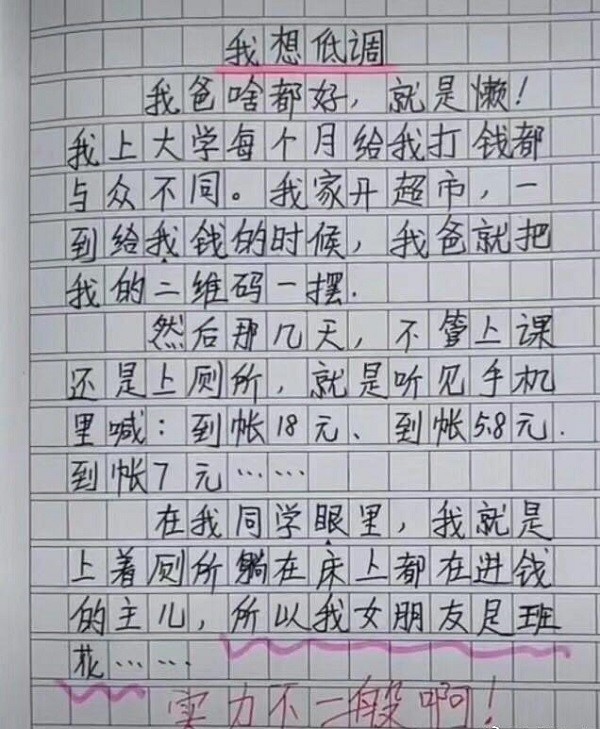 我想低调
我爸啥都好，就是懒！
我上大学每个月给我打钱都
与众不同。我家开超市，一
到给我钱的时候，我爸就把
我的二维码一摆.
然后那几天，不管上课
还是上厕所，就是听见手机
里喊：到帐18元、到帐5.8元.
到帐7元……
在我同学眼里，我就是
上着厕所躺在床上都在进钱
的主儿，所以我女朋友是班
花……
实力不一般啊！